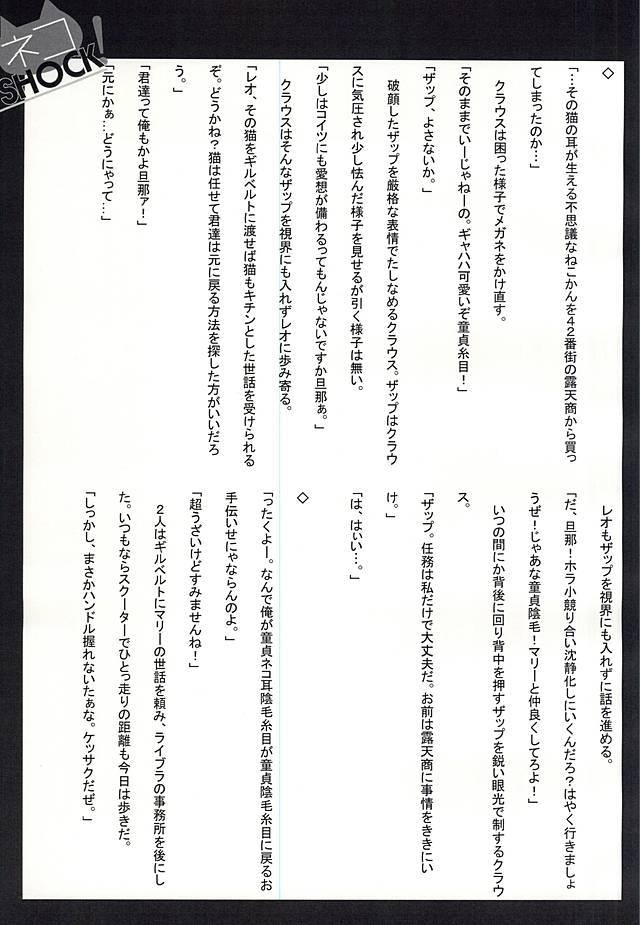 ネコ
SHOCK!
◇
「…その猫の耳が生える不思議なねこかんを42番街の露天商から買っ
てしまったのか…」
クラウスは困った様子でメガネをかけ直す。
「そのままでいーじゃねーの。ギャハハ可愛いぞ童貞糸目！」
「ザップ、よさないか。」
破顔したザップを厳格な表情でたしなめるクラウス。ザップはクラウ
スに気圧され少し怯んだ様子を見せるが引く様子は無い。
「少しはコイツにも愛想が備わるってもんじゃないですか旦那ぁ。」
クラウスはそんなザップを視界にも入れずレオに歩み寄る。
「レオ、その猫をギルベルトに渡せば猫もキチンとした世話を受けられる
ぞ。どうかね？猫は任せて君達は元に戻る方法を探した方がいいだろ
う。」
「君達って俺もかよ旦那ァ！」
「元にかぁ…どうにゃって…」
レオもザップを視界にも入れずに話を進める。
「だ、旦那！ホラ小競り合い沈静化しにいくんだろ？はやく行きましょ
うぜ！じゃあな童貞陰毛！マリーと仲良くしてろよ！」
いつの間にか背後に回り背中を押すザップを鋭い眼光で制するクラウ
ス。
「ザップ。任務は私だけで大丈夫だ。お前は露天商に事情をききにい
け。」
「は、はぃぃ…。」
◇
「ったくよー。なんで俺が童貞ネコ耳陰毛糸目が童貞陰毛糸目に戻るお
手伝いせにゃならんのよ。」
「超うざいけどすみませんね！」
２人はギルベルトにマリーの世話を頼み、ライブラの事務所を後にし
た。いつもならスクーターでひとっ走りの距離も今日は歩きだ。
「しっかし、まさかハンドル握れないたぁな。ケッサクだぜ。」